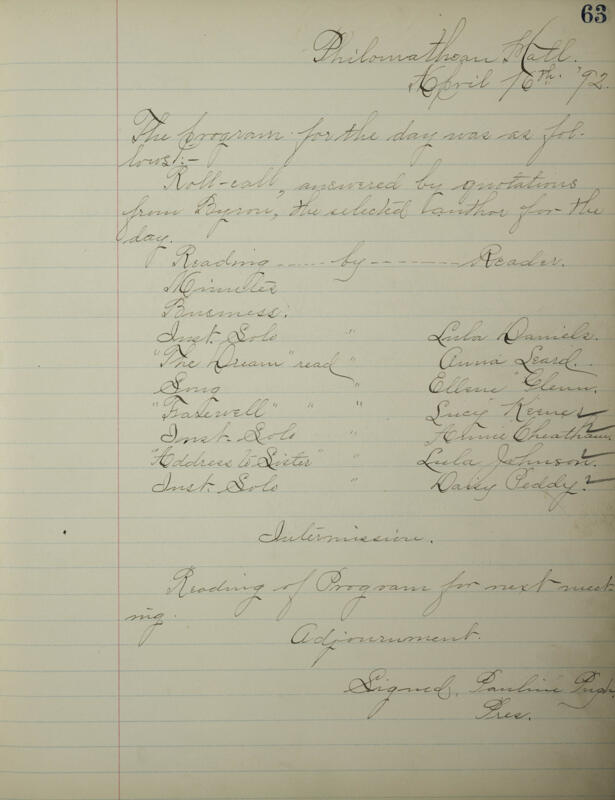 63
Philomathean Hall.
April 16th. '92.
The program for the day was as fol-
lows:-
Roll-call, answered by quotations
from Byron, the selected author for the
day.
Reading ---- by ------- Reader.
Minutes
Business.
Inst. Solo " Lula Daniels.
"The Dream" read " Anna Leard.
Song " Glenn.
"Farewell" " " Lucy
Inst. Solo " Annie Cheatham.
"Address to Sister" " Lula Johnson.
Inst. Solo " Daisy Peddy.
Intermission.
Reading of Program for next meet-
ing.
Adjournment.
Signed, Pauline Pugh,
Pres.